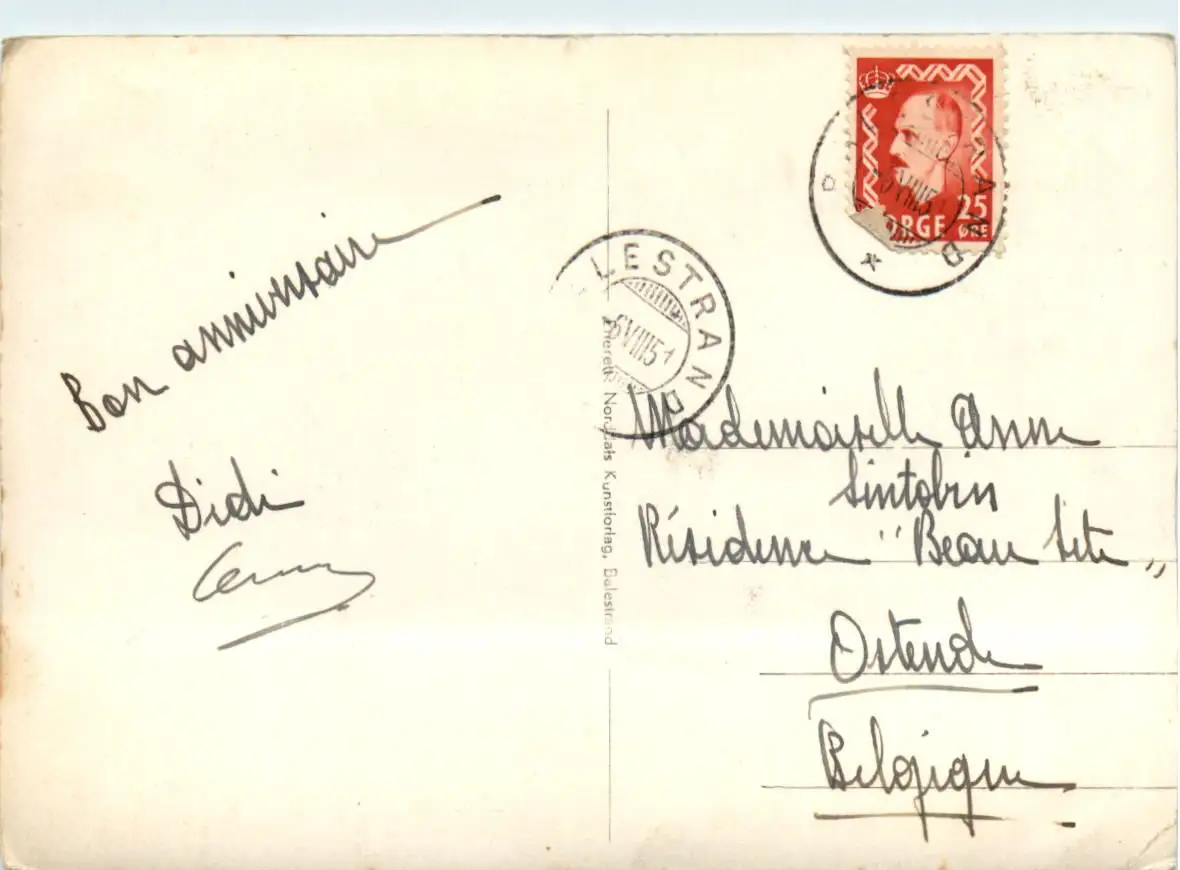 Bon anniversaire
Didi
25
ORGE ØRE
LESTRAND
6 VIII 51
Eneret: Norddals Kunstforlag, Balestrand
Mademoiselle Anne
Sintobin
Résidence "Beau Site"
Ostende
Belgique